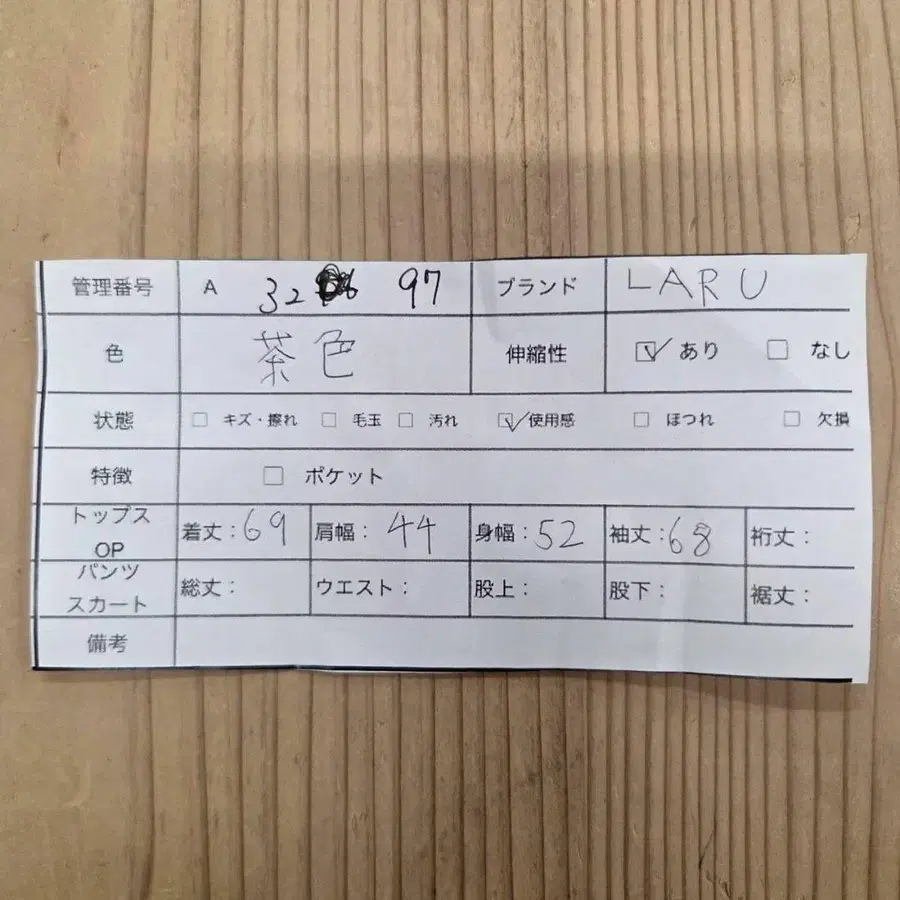 管理番号 A 32 97 ブランド LARU
色 茶色 伸縮性 ☑ あり ☐ なし
状態 ☐ キズ・擦れ ☐ 毛玉 ☐ 汚れ ☑ 使用感 ☐ ほつれ ☐ 欠損
特徴 ☐ ポケット
トップス
OP
着丈:69 肩幅: 44 身幅:52 袖丈:68 裄丈:
パンツ
スカート
総丈: ウエスト: 股上: 股下: 裾丈:
備考